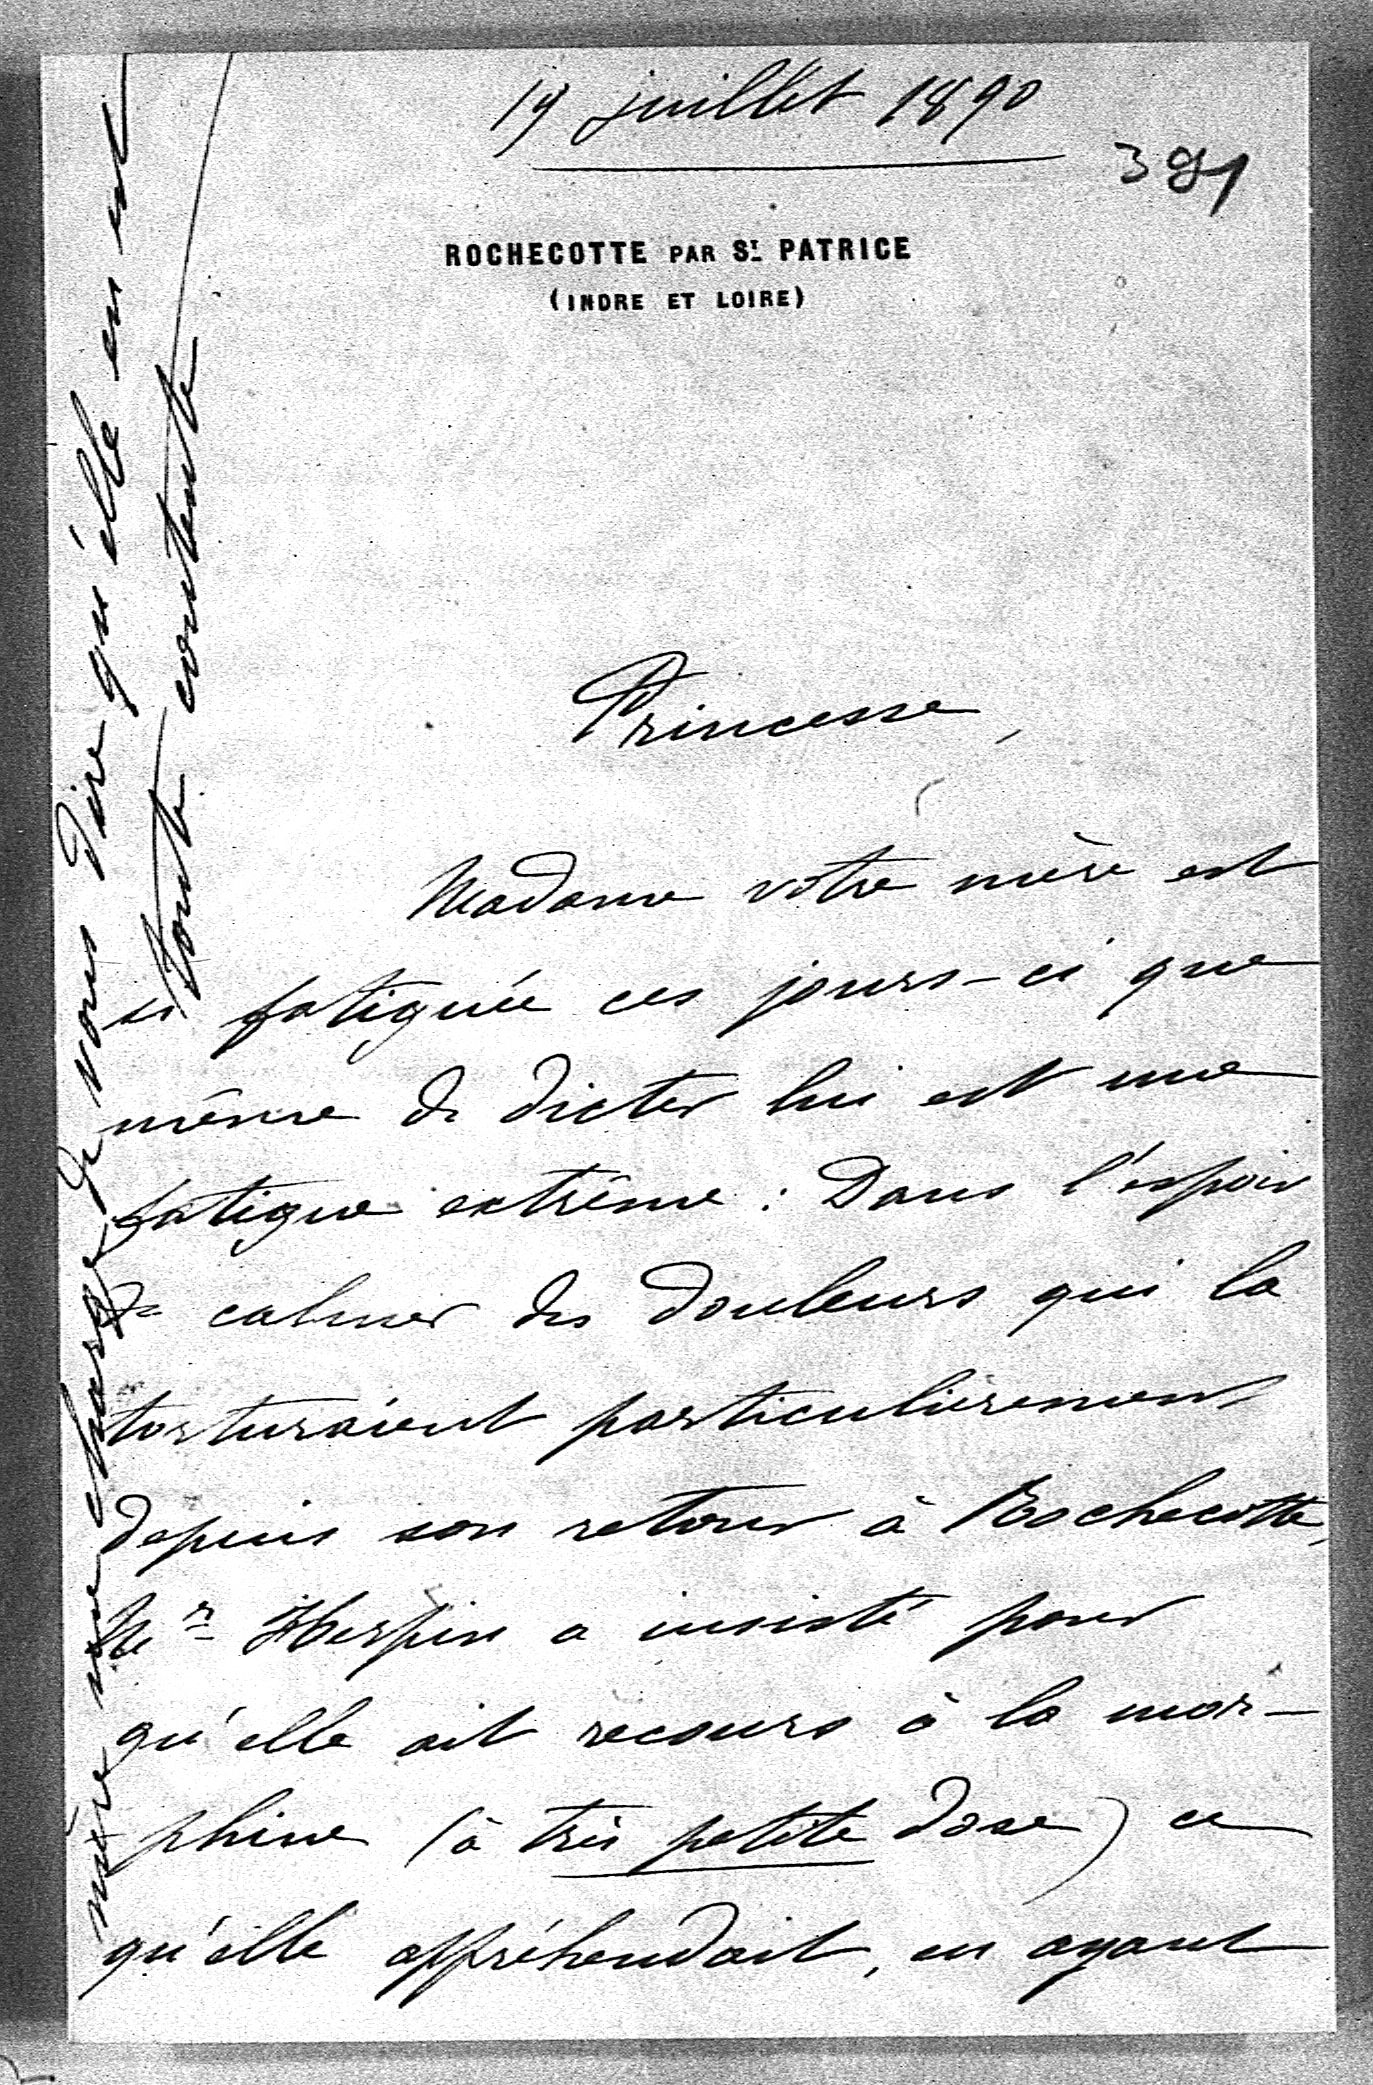 19 juillet 1890
391
ROCHECOTTE PAR ST PATRICE
(INDRE ET LOIRE)
Princesse,
Madame votre mère est
si fatiguée ces jours-ci que
même de dicter lui est une
fatigue extrême : Dans l'espoir
de calmer des douleurs qui la
torturaient particulièrement
depuis son retour à Rochecotte,
Mr Herpin a insisté pour
qu'elle ait recours à la mor-
phine (à très petite dose) ce
qu'elle appréhendait, en ayant
mère me charge de vous dire qu'elle en est
toute contente